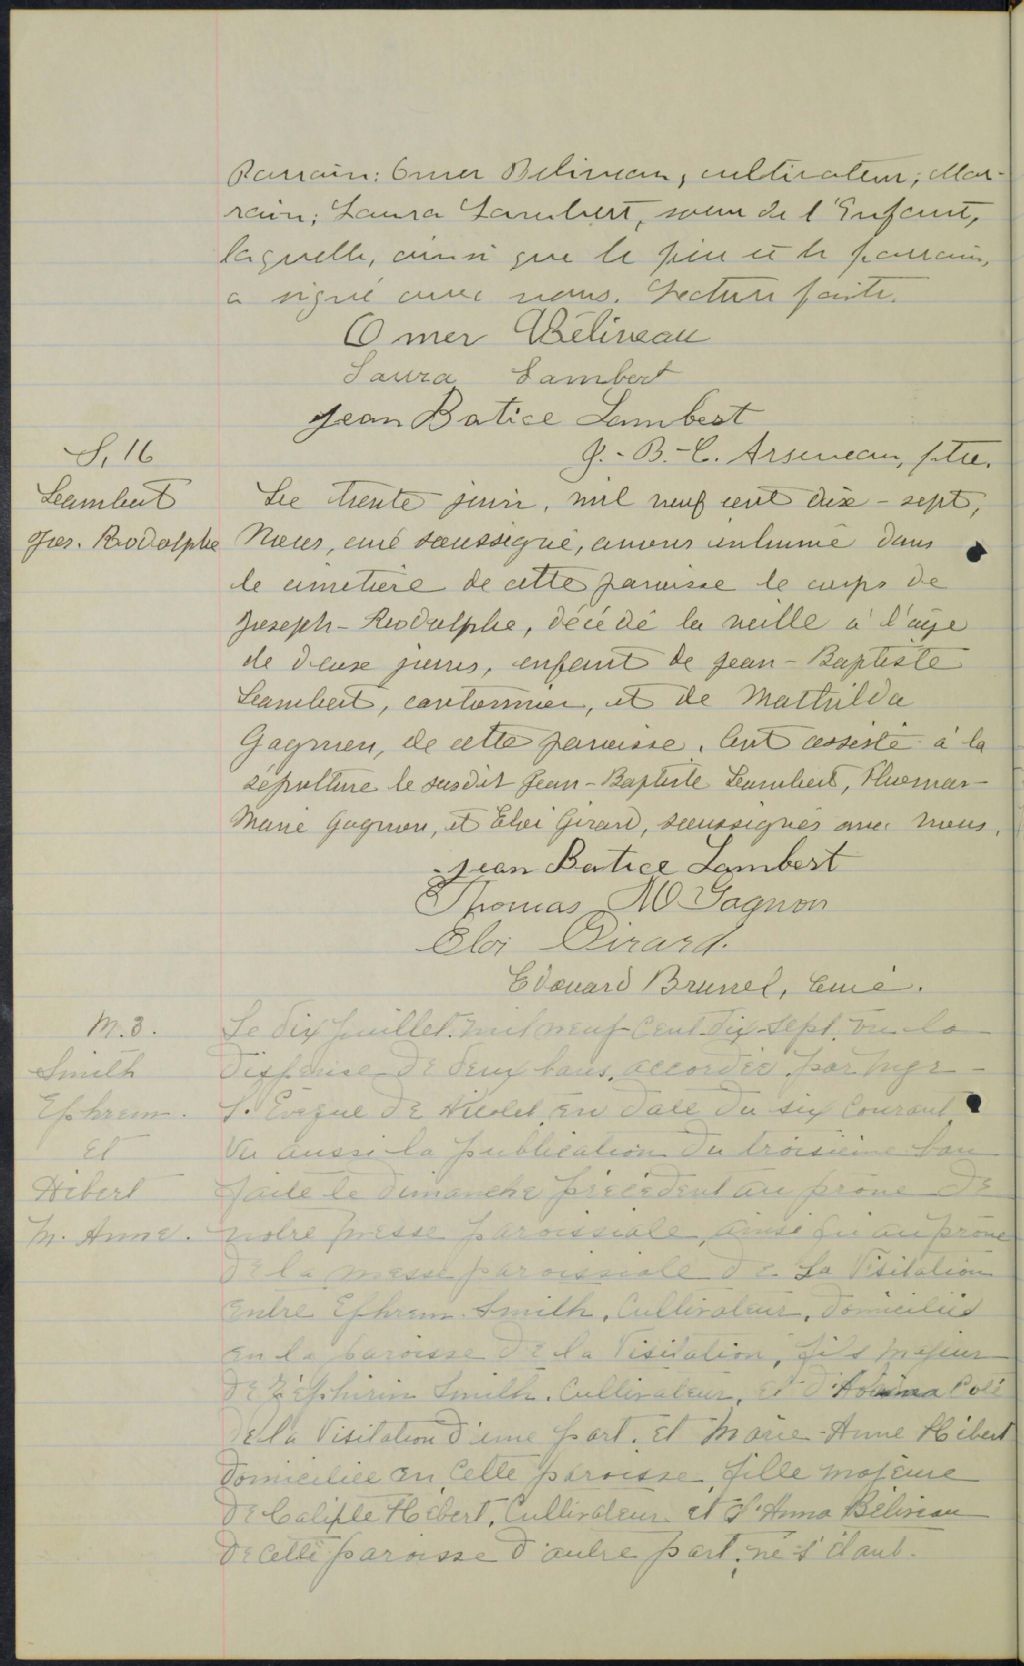 Parrain: Omer Béliveau, cultivateur; Mar-
raine; Laura Lambert, soeur de l'Enfant,
laquelle, ainsi que le père et le parrain,
a signé avec nous. Lecture faite.
Omer Béliveau
Laura Lambert
Jean Batice Lambert
J.-B.-C. Arseneau, ptre.
S. 16
Lambert
Jos. Rodolphe
Le trente juin, mil neuf cent dix-sept,
Nous, curé soussigné, avons inhumé dans
le cimetière de cette paroisse le corps de
Joseph-Rodolphe, décédé la veille à l'âge
de deux jours, enfant de Jean-Baptiste
Lambert, cantonnier, et de Mathilda
Gagnon, de cette paroisse. Ont assisté à la
sépulture le susdit Jean-Baptiste Lambert, Thomas-
Marie Gagnon, et Eloi Girard, soussignés avec nous.
Jean Batice Lambert
Thomas M Gagnon
Eloi Girard.
Edouard Brunel, curé.
M. 3.
Smith
Ephrem.
Et
Hébert
M. Anne.
Le dix juillet mil neuf-cent-dix-sept, vu la
dispense de deux bans, accordée par Mgr
l'Evêque de Nicolet en date du six courant
Vu aussi la publication du troisième ban
faite le dimanche précédent au prône de
notre messe paroissiale, ainsi qu'au prône
de la messe paroissiale de La Visitation
entre Ephrem Smith, Cultivateur, domicilié
en la paroisse de la Visitation, fils majeur
de Zéphirin Smith, Cultivateur, et d'
de la Visitation d'une part, et Marie-Anne Hébert
domiciliée en cette paroisse, fille majeure
de Calixte Hébert, Cultivateur et d'Anna Béliveau
de cette paroisse d'autre part, ne s'étant